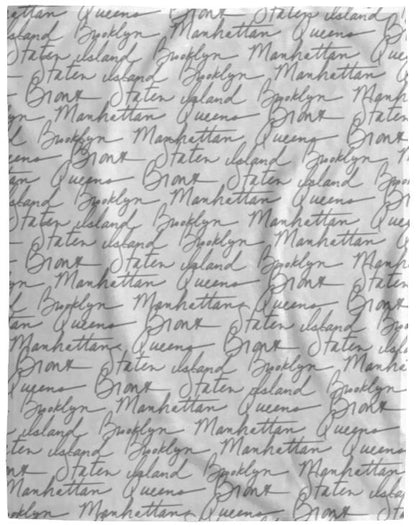 Manhattan Queens Bronx Staten Island
Bronx Staten Island Brooklyn Manhattan Queens
Staten Island Brooklyn Manhattan Queens
Staten Island Brooklyn Manhattan
Bronx Staten Island Brooklyn
Brooklyn Manhattan Queens Bronx
Queens Bronx Staten Island
Queens Bronx Staten Island Brooklyn
Island Brooklyn Manhattan Queens
Staten Island Brooklyn Manhattan
Staten Island Brooklyn Manhattan
Bronx Staten Island Brooklyn
Manhattan Queens Bronx Staten
Brooklyn Manhattan Queens
Queens Bronx Staten Island
Manhattan Queens Bronx Staten Island
Bronx Staten Island Brooklyn
Queens Bronx Staten Island Brooklyn
Brooklyn Manhattan Queens Bronx
Island Brooklyn Manhattan Queens
Staten Island Brooklyn Manhattan
Bronx Staten Island Brooklyn
Manhattan Queens Bronx Staten
Brooklyn Manhattan Queens